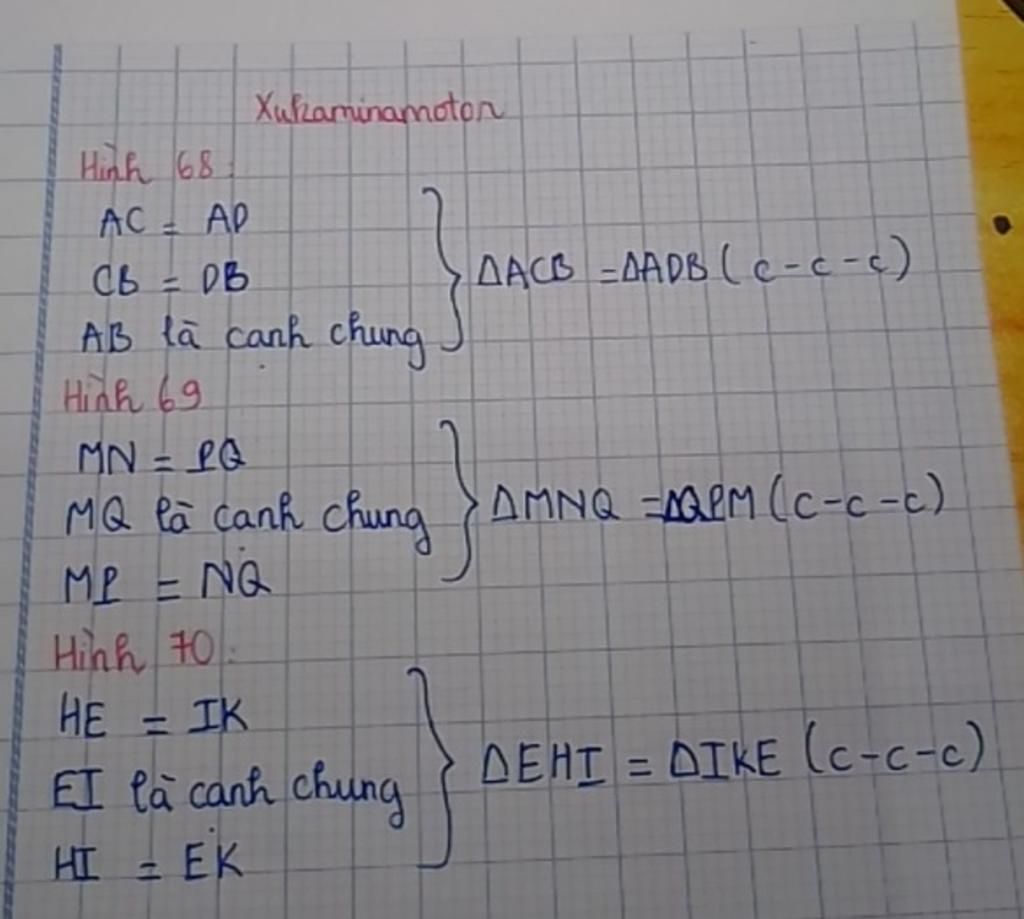 Xukaminamoton
Hình 68:
AC = AD
CB = DB
AB là cạnh chung
ΔACB = ΔADB (c-c-c)
Hình 69
MN = PQ
MQ là cạnh chung
MP = NQ
ΔMNQ = ΔQPM (c-c-c)
Hình 70:
HE = IK
EI là cạnh chung
HI = EK
ΔEHI = ΔIKE (c-c-c)